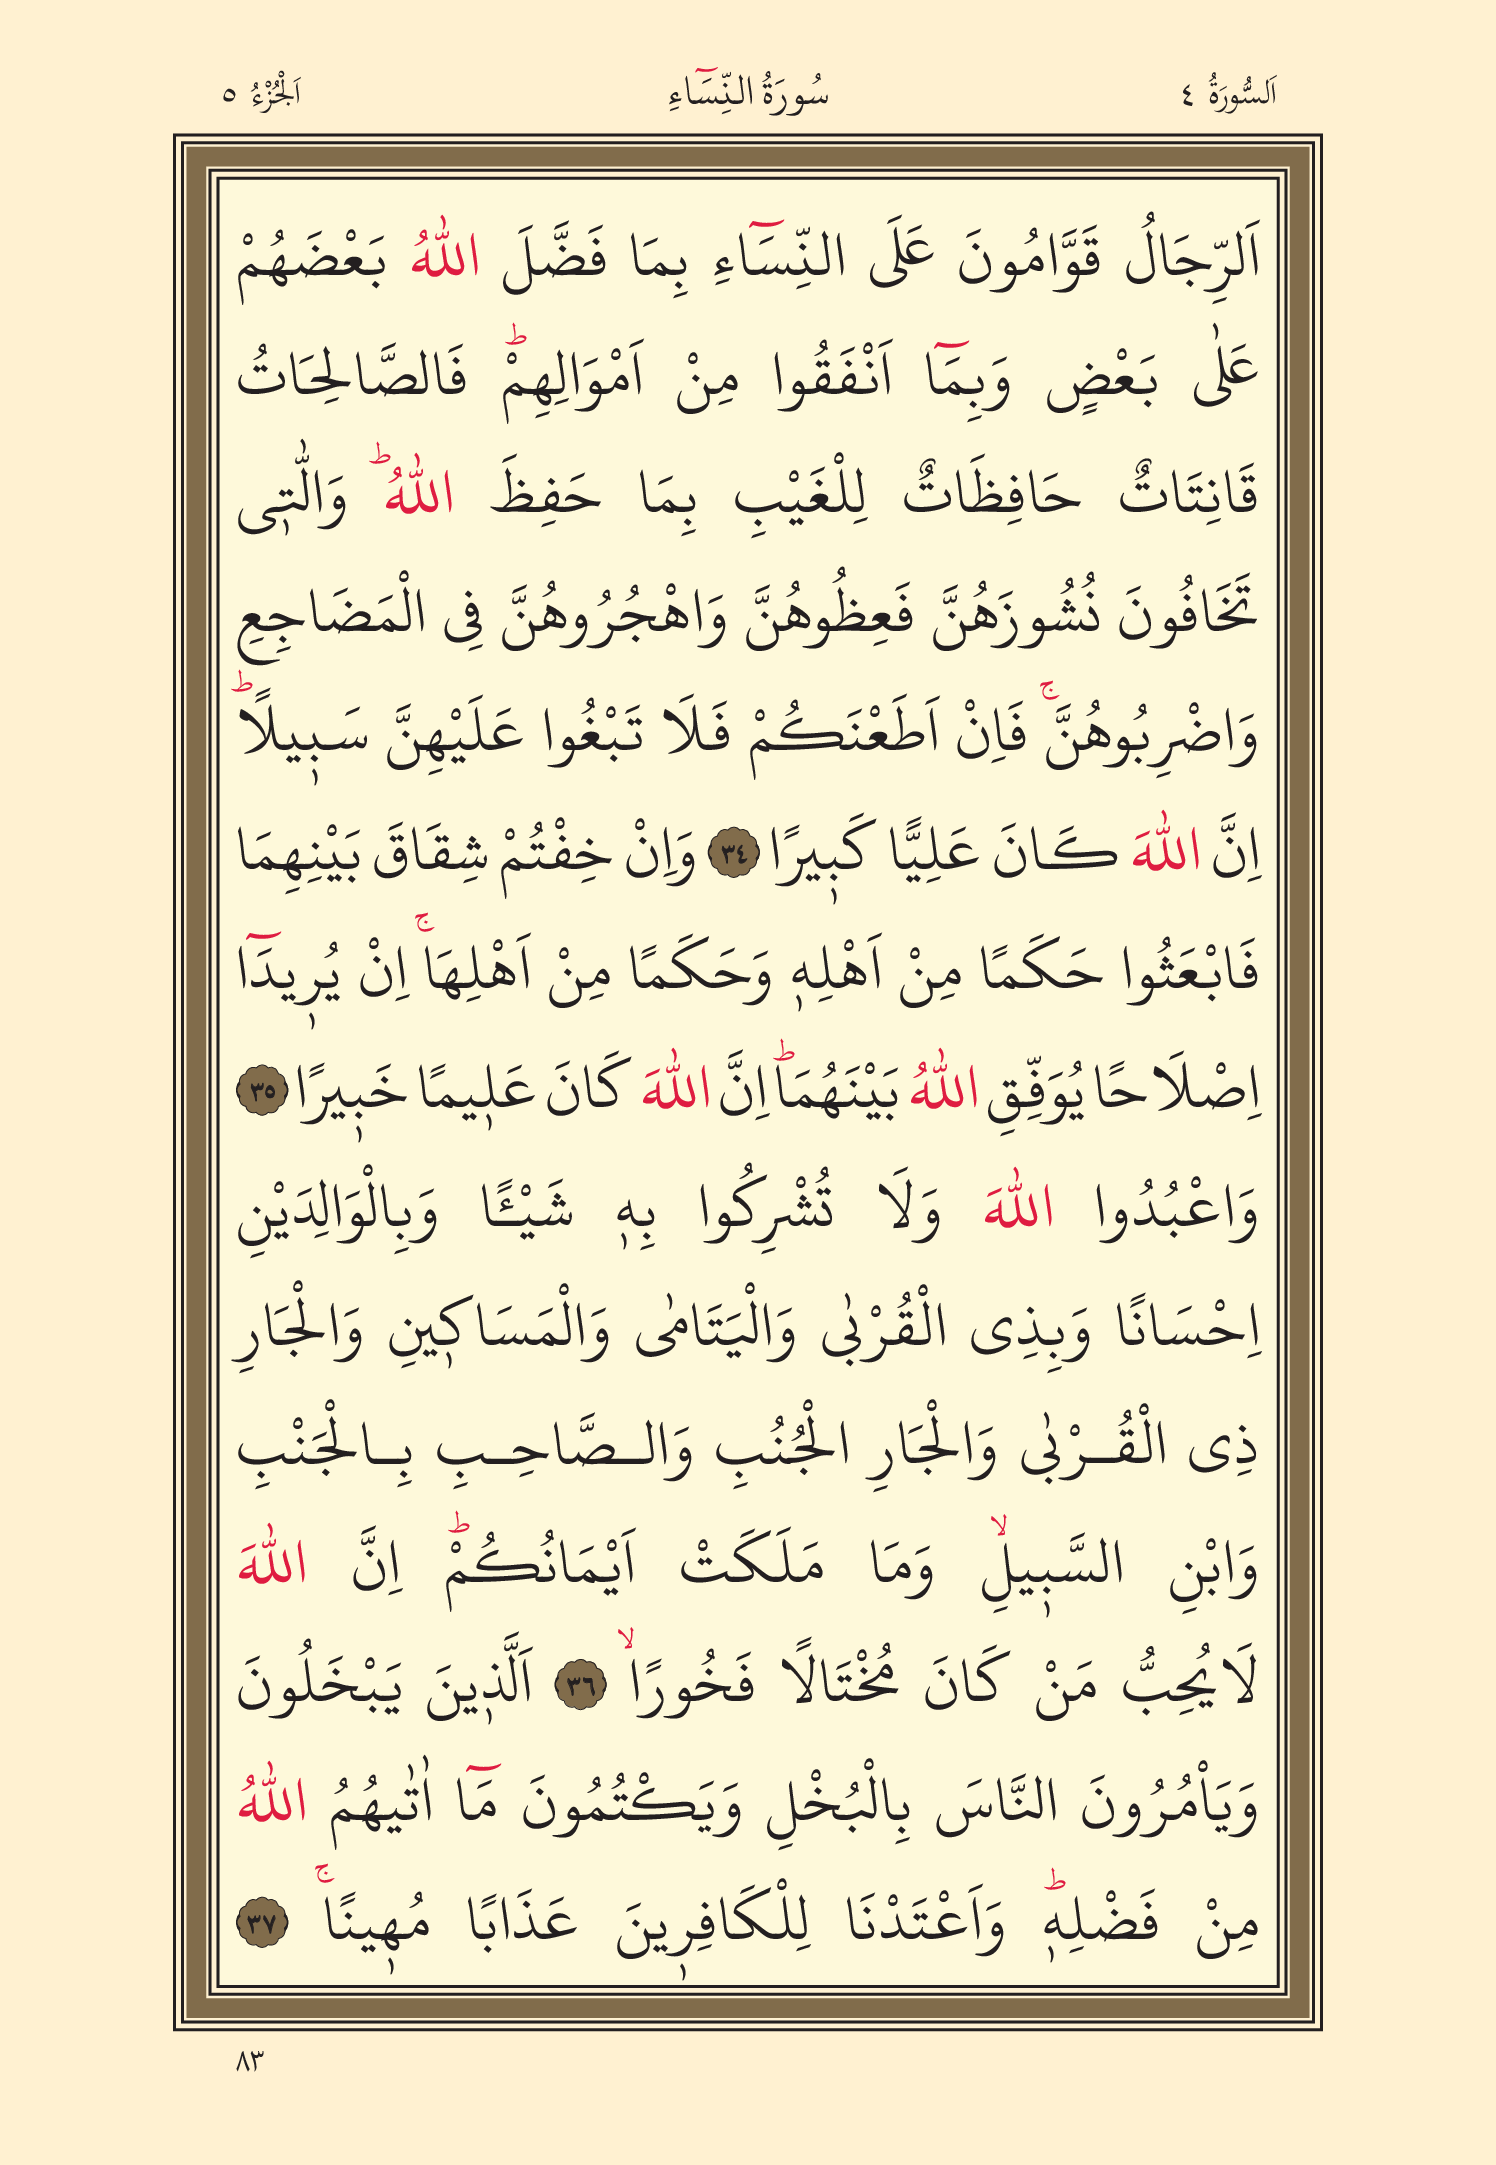 اَلسُّورَةُ ٤ سُورَةُ النِّسَٓاءِ اَلْجُزْءُ ٥
اَلرِّجَالُ قَوَّامُونَ عَلَى النِّسَٓاءِ بِمَا فَضَّلَ اللّٰهُ بَعْضَهُمْ
عَلٰى بَعْضٍ وَبِمَٓا اَنْفَقُوا مِنْ اَمْوَالِهِمْۜ فَالصَّالِحَاتُ
قَانِتَاتٌ حَافِظَاتٌ لِلْغَيْبِ بِمَا حَفِظَ اللّٰهُۜ وَالّٰت۪ى
تَخَافُونَ نُشُوزَهُنَّ فَعِظُوهُنَّ وَاهْجُرُوهُنَّ فِى الْمَضَاجِعِ
وَاضْرِبُوهُنَّۚ فَاِنْ اَطَعْنَكُمْ فَلَا تَبْغُوا عَلَيْهِنَّ سَب۪يلًاۜ
اِنَّ اللّٰهَ كَانَ عَلِيًّا كَب۪يرًا ٣٤ وَاِنْ خِفْتُمْ شِقَاقَ بَيْنِهِمَا
فَابْعَثُوا حَكَمًا مِنْ اَهْلِه۪ وَحَكَمًا مِنْ اَهْلِهَاۚ اِنْ يُر۪يدَٓا
اِصْلَاحًا يُوَفِّقِ اللّٰهُ بَيْنَهُمَاۜ اِنَّ اللّٰهَ كَانَ عَل۪يمًا خَب۪يرًا ٣٥
وَاعْبُدُوا اللّٰهَ وَلَا تُشْرِكُوا بِه۪ شَيْـًٔا وَبِالْوَالِدَيْنِ
اِحْسَانًا وَبِذِى الْقُرْبٰى وَالْيَتَامٰى وَالْمَسَاك۪ينِ وَالْجَارِ
ذِى الْقُرْبٰى وَالْجَارِ الْجُنُبِ وَالصَّاحِبِ بِالْجَنْبِ
وَابْنِ السَّب۪يلِۙ وَمَا مَلَكَتْ اَيْمَانُكُمْۜ اِنَّ اللّٰهَ
لَا يُحِبُّ مَنْ كَانَ مُخْتَالًا فَخُورًاۙ ٣٦ اَلَّذ۪ينَ يَبْخَلُونَ
وَيَاْمُرُونَ النَّاسَ بِالْبُخْلِ وَيَكْتُمُونَ مَٓا اٰتٰيهُمُ اللّٰهُ
مِنْ فَضْلِه۪ۜ وَاَعْتَدْنَا لِلْكَافِر۪ينَ عَذَابًا مُه۪ينًاۚ ٣٧
٨٣